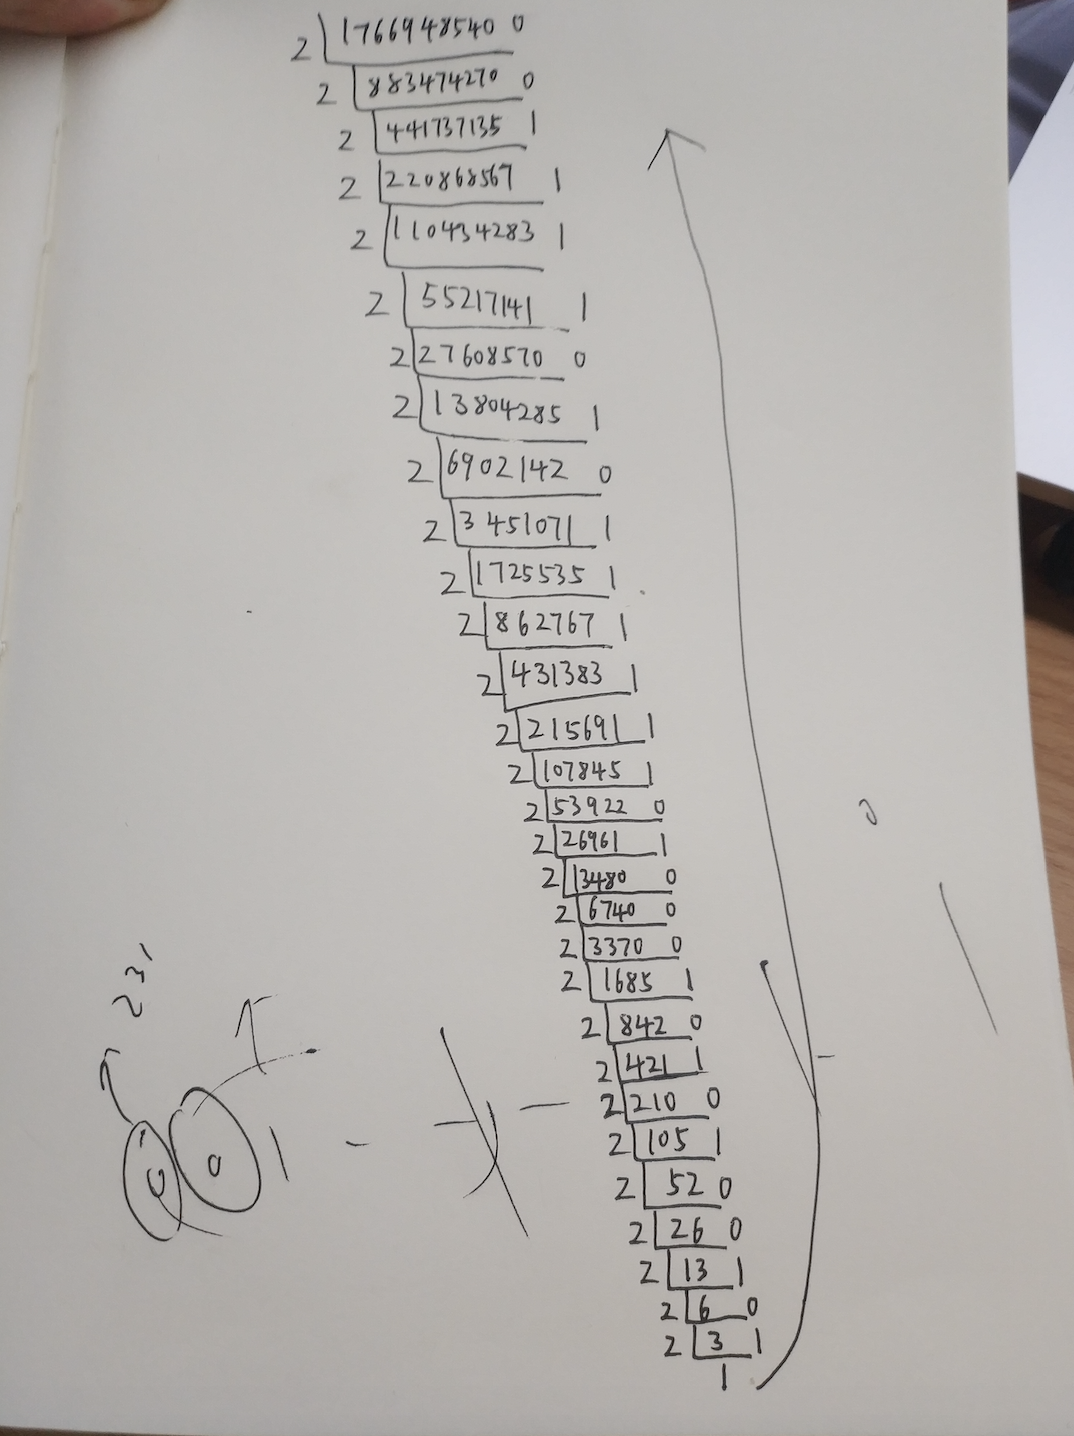 2 1766948540 0
2 883474270 0
2 441737135 1
2 220868567 1
2 110434283 1
2 55217141 1
2 27608570 0
2 13804285 1
2 6902142 0
2 3451071 1
2 1725535 1
2 862767 1
2 431383 1
2 215691 1
2 107845 1
2 53922 0
2 26961 1
2 13480 0
2 6740 0
2 3370 0
2 1685 1
2 842 0
2 421 1
2 210 0
2 105 1
2 52 0
2 26 0
2 13 1
2 6 0
2 3 1
1
0
2³¹
0 0 1 - - -